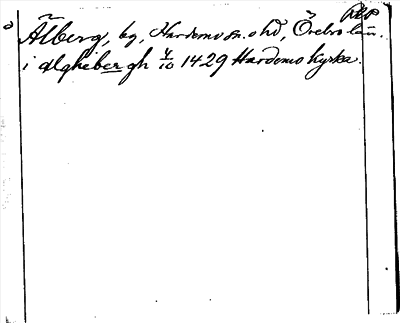 Älberg, by, Hardemo sn. o hd, Örebro län.
i Alghebergh 4/10 1429 Hardemo kyrka.